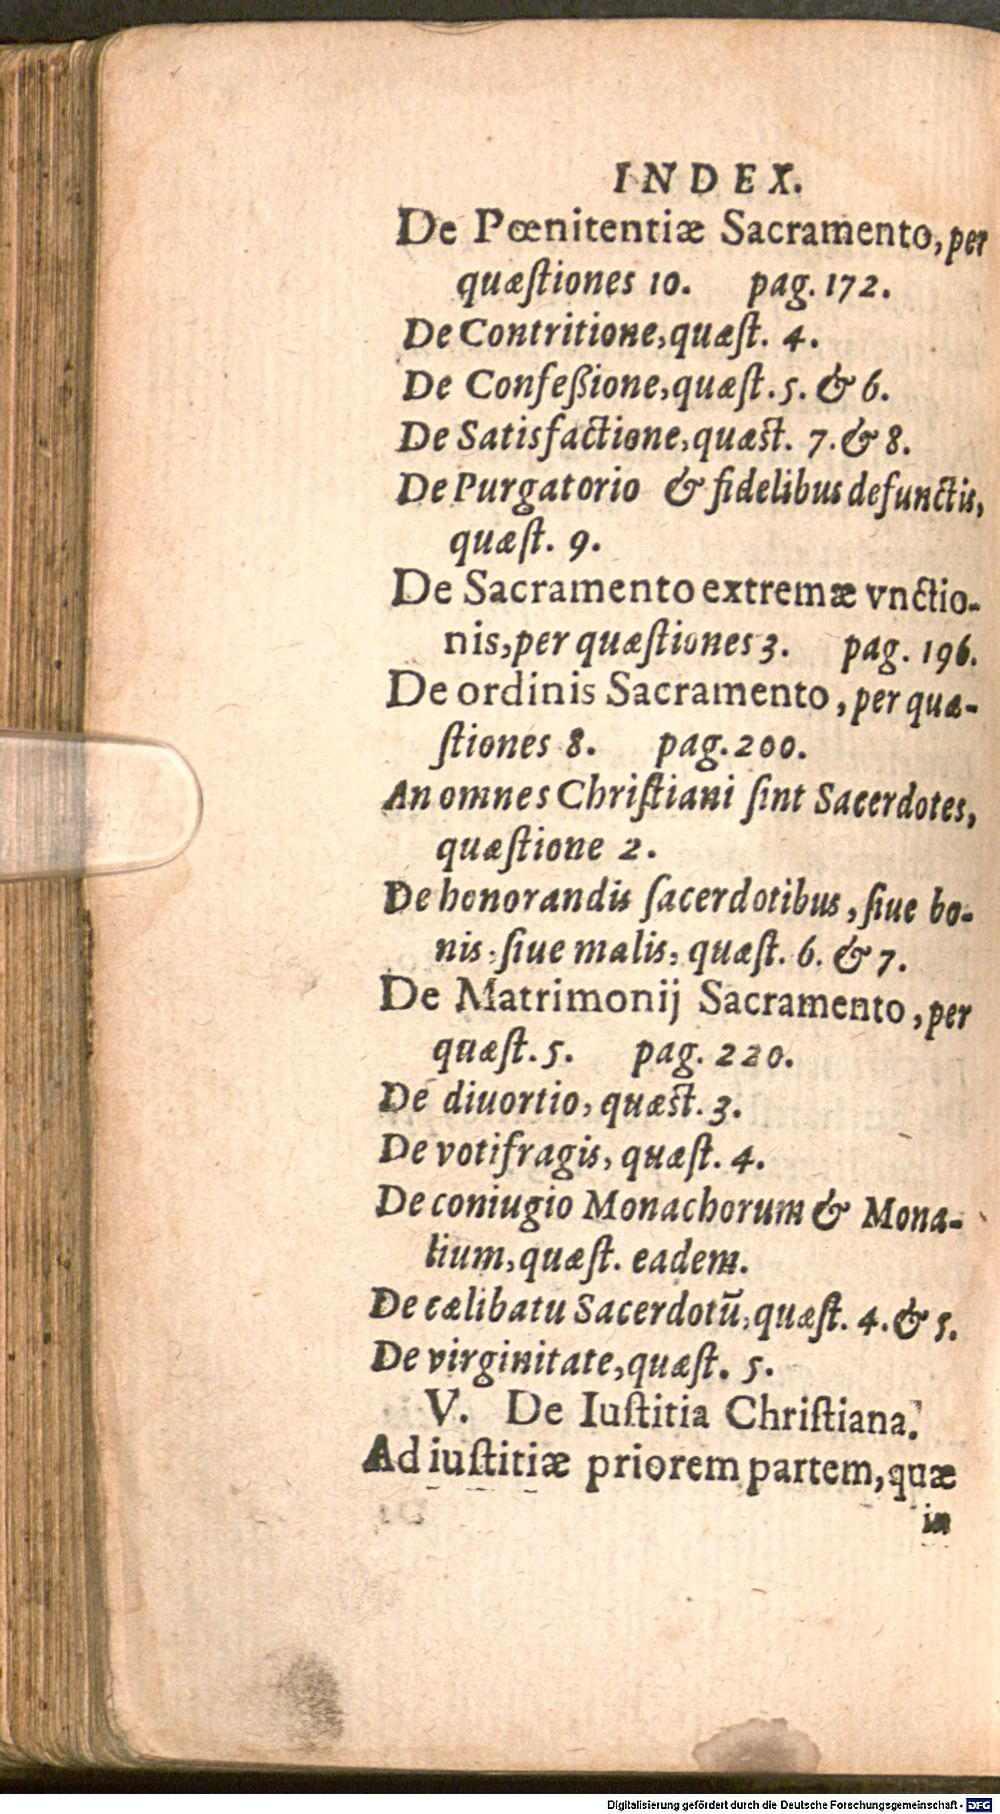 INDEX.
De Pœnitentiæ Sacramento, per
quæſtiones 10. pag. 172.
De Contritione, quæſt. 4.
De Confeßione, quæſt. 5. & 6.
De Satisfactione, quæst. 7. & 8.
De Purgatorio & fidelibus defunctis,
quæſt. 9.
De Sacramento extremæ vnctio-
nis, per quæſtiones 3. pag. 196.
De ordinis Sacramento, per quæ-
ſtiones 8. pag. 200.
An omnes Chriſtiani ſint Sacerdotes,
quæſtione 2.
De honorandis ſacerdotibus, ſiue bo-
nis, ſiue malis, quæſt. 6. & 7.
De Matrimonij Sacramento, per
quæſt. 5. pag. 220.
De diuortio, quæst. 3.
De votifragis, quæſt. 4.
De coniugio Monachorum & Mona-
lium, quæſt. eadem.
De cælibatu Sacerdotū, quæſt. 4. & 5.
De virginitate, quæſt. 5.
V. De Iuſtitia Chriſtiana.
Ad iuſtitiæ priorem partem, quæ
in
Digitalisierung gefördert durch die Deutsche Forschungsgemeinschaft - DFG